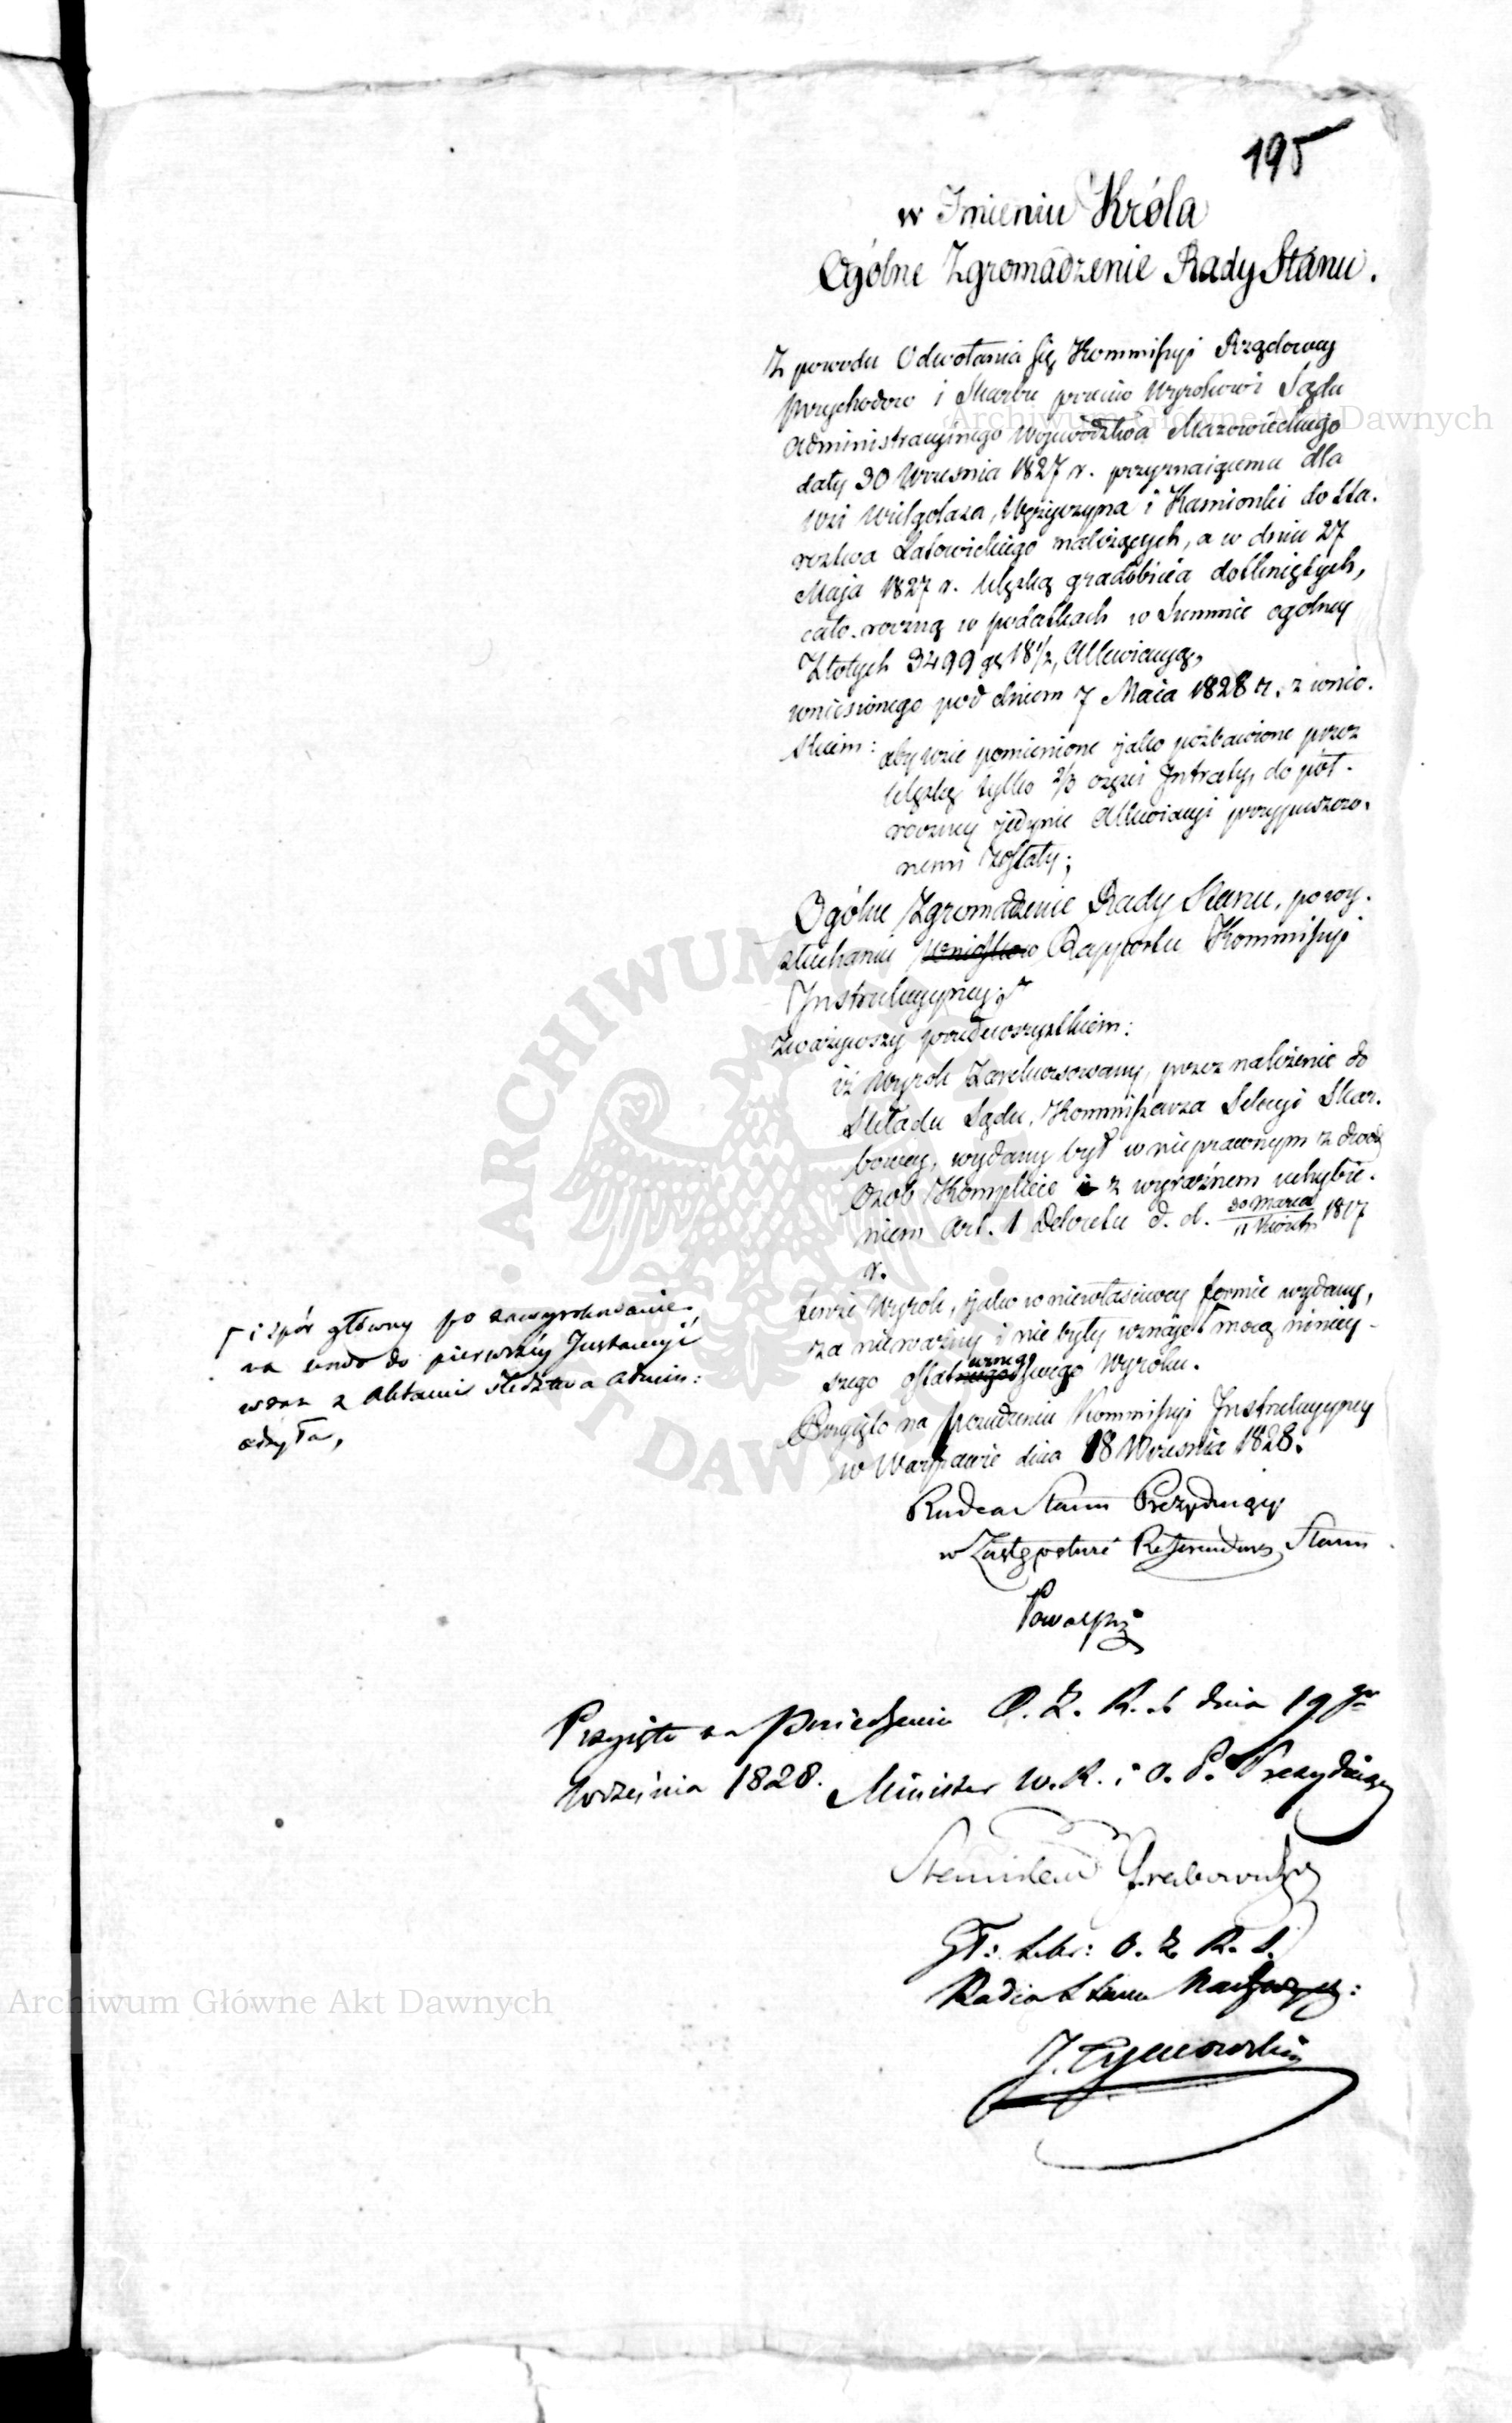 195
w Imieniu Króla
Ogólne Zgromadzenie Rady Stanu.
Z powodu Odwołania się Kommissyi Rządowey
Przychodow i Skarbu przeciw Wyrokowi Sądu
Administracyinego Wojewódzhwa Mazowieckiego
daty 30 Wrzesnia 1827 r. przyznaiącemu dla
Wsi Wielgolasa, Węzyczyna i Kamionki do Sta-
rostwa Latowickiego należących, a w dniu 27
Maja 1827 r. klęską gradobicia dotkniętych,
cało-roczną w podatkach w Summie ogolney
Złotych 3499 gr 18½, Allewiacyą,
wniesionego pod dniem 7 Maia 1828 r. z wnio-
skiem: aby wsie pomienione jako pozbawione przez
klęskę tylko 2/3 części Intraty, do pół-
roczney jedynie Allewiacyi przypuszczo-
nemi zostały;
Ogólne Zgromadzenie Rady Stanu, po wy-
słuchaniu Wniosków Rapportu Kommissyi
Instrukcyyney;
zważywszy przedewszystkiem:
iż Wyrok Zarekursowany, przez należenie do
Składu Sądu, Kommissarza Sekcyi Skar-
bowey, wydany był w nieprawnym z dwóch
Osob Komplecie i z wyraźnem uchybie-
niem Art. 1 Dekretu d. d. 30 Marca / 11 Kwietn 1817
r.
tenże Wyrok, jako w niewłaściwey formie wydany,
za nieważny i nie były uznaje mocą niniey-
szego ostatecznego swego Wyroku.
Γ i spór główny po zawyrokowanie
na nowo do pierwszéy Instancyi
wraz z Aktami śledztwa admin:
odsyła,
Przyięto na Posiedzeniu Kommissyi Instrukcyyney
w Warszawie dnia 18 Wrzesnia 1828.
Radca Stanu Prezyduiący
w Zastępstwie Referendarz Stanu
Przyięto na Posiedzeniu O. Z. R. S. dnia 19go
Września 1828. Minister W. R. i O. P. Prezyduiący
Stanisław Grabowski
Sekr: O. Z. R. S.
Radca Stanu Nadzwycz:
J. Tymowski
Archiwum Główne Akt Dawnych
Archiwum Główne Akt Dawnych